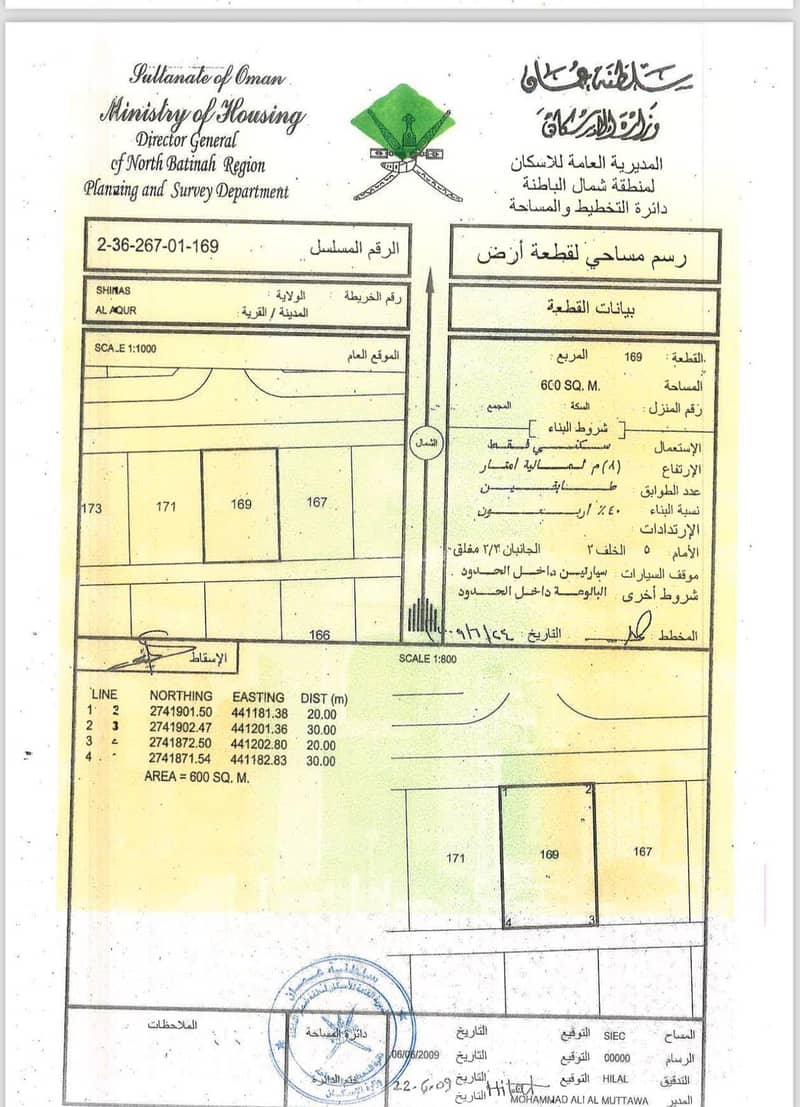 Sultanate of Oman
Ministry of Housing
Director General
of North Batinah Region
Planning and Survey Department
سلطنة عمان
وزارة الإسكان
المديرية العامة للاسكان
لمنطقة شمال الباطنة
دائرة التخطيط والمساحة
2-36-267-01-169 الرقم المسلسل
SHINAS الولاية : رقم الخريطة :
AL AQUR المدينة / القرية :
SCALE 1:1000 الموقع العام
173
171
169
167
166
الشمال
رسم مساحي لقطعة أرض
بيانات القطعة
القطعة : 169 المربع :
المساحة 600 SQ. M.
رقم المنزل : السكة : المجمع :
شروط البناء
الإستعمال سكني فقط
الإرتفاع (٨) م ثمانية امتار
عدد الطوابق طابقين
نسبة البناء ٤٠٪ أربعون
الإرتدادات
الأمام ٥ الخلف ٣ الجانبان ٢/٣ مغلق
موقف السيارات سيارتين داخل الحدود
شروط أخرى البالوعة داخل الحدود
المخطط : التاريخ :
الإسقاط
SCALE 1:800
LINE NORTHING EASTING DIST (m)
1 2 2741901.50 441181.38 20.00
2 3 2741902.47 441201.36 30.00
3 2741872.50 441202.80 20.00
4 2741871.54 441182.83 30.00
AREA = 600 SQ. M.
1 2
171
169
167
4 3
الملاحظات
سلطنة عمان
دائرة المساحة
ختم الدائرة
المساح SIEC التوقيع التاريخ
الرسام 00000 التوقيع التاريخ 06/06/2009
التدقيق HILAL التوقيع Hilal التاريخ 22.6.09
المدير MOHAMMAD ALI AL MUTTAWA التاريخ